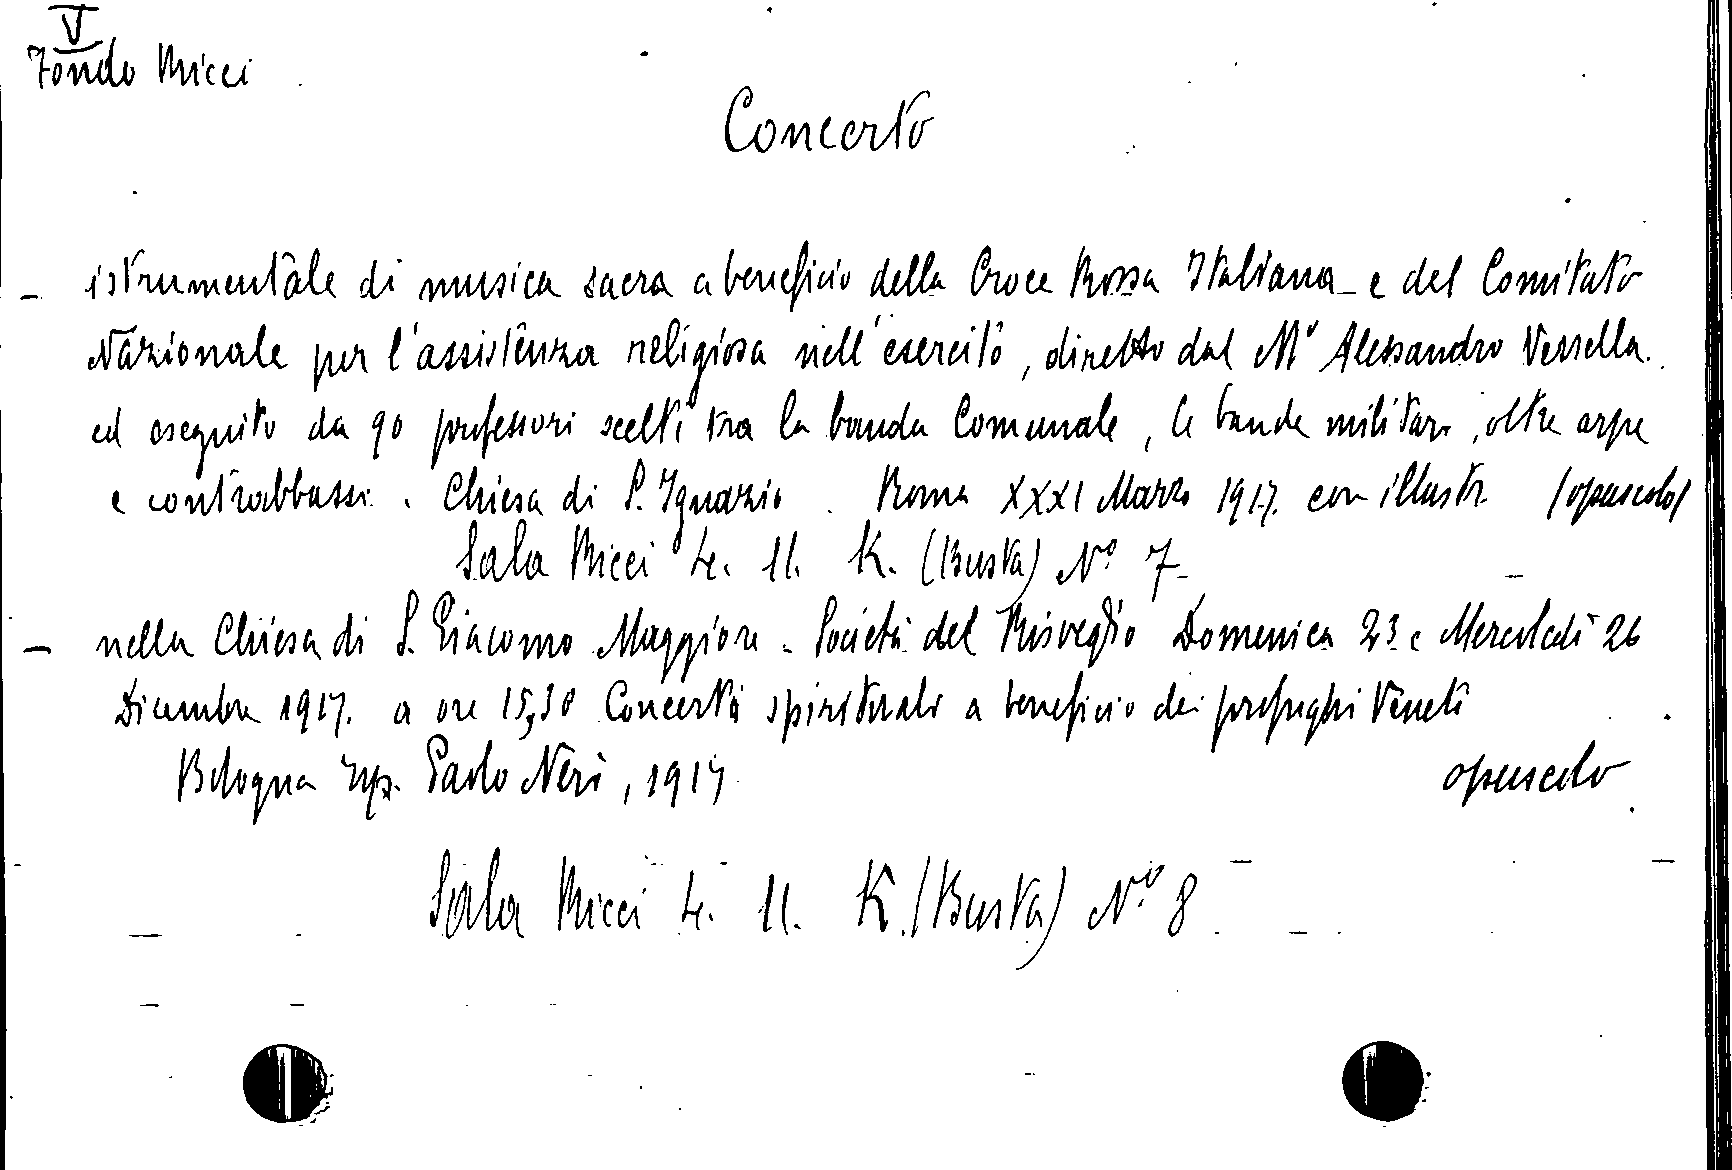 V
Fondo Ricci
Concerto
- istrumentale di musica sacra a beneficio della Croce Rossa Italiana e del Comitato
Nazionale per l'assistenza religiosa nell'esercito, diretto dal M° Alessandro Vessella
ed eseguito da 90 professori scelti tra la banda Comunale, le bande militari, oltre arpe
e contrabbassi. Chiesa di S. Ignazio. Roma XXXI Marzo 1917. con illustr. (opuscolo)
Sala Ricci 4. 11. K. (Busta) N° 7
- nella Chiesa di S. Giacomo Maggiore - Società del Risveglio Domenica 23 e Mercoledì 26
Dicembre 1917. a ore 15,30 Concerti spirituali a beneficio dei profughi Veneti
Bologna Tip. Paolo Neri, 1917 opuscolo
Sala Ricci 4. 11. K. (Busta) N° 8